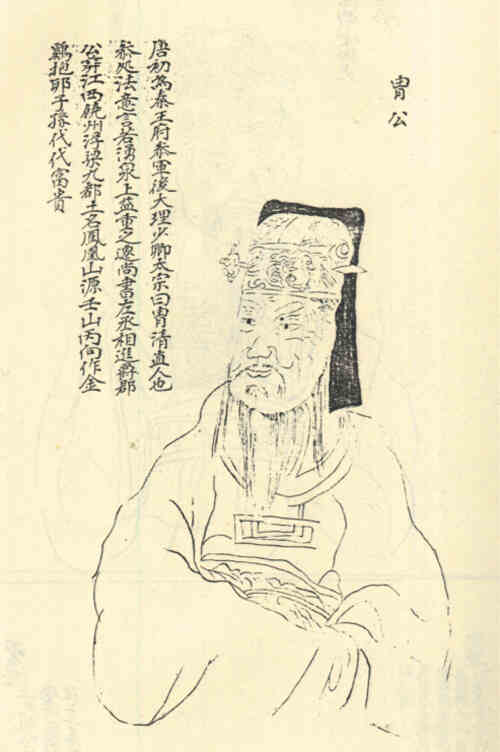 胄公
唐初為秦王府參軍後大理少卿太宗曰胄清直人也
參処法意言若湧泉上益重之遷尚書左丞相進爵郡
公葬江西饒州浮梁九都土名鳳凰山源壬山丙向作金
鷄抱卵子孫代代富貴